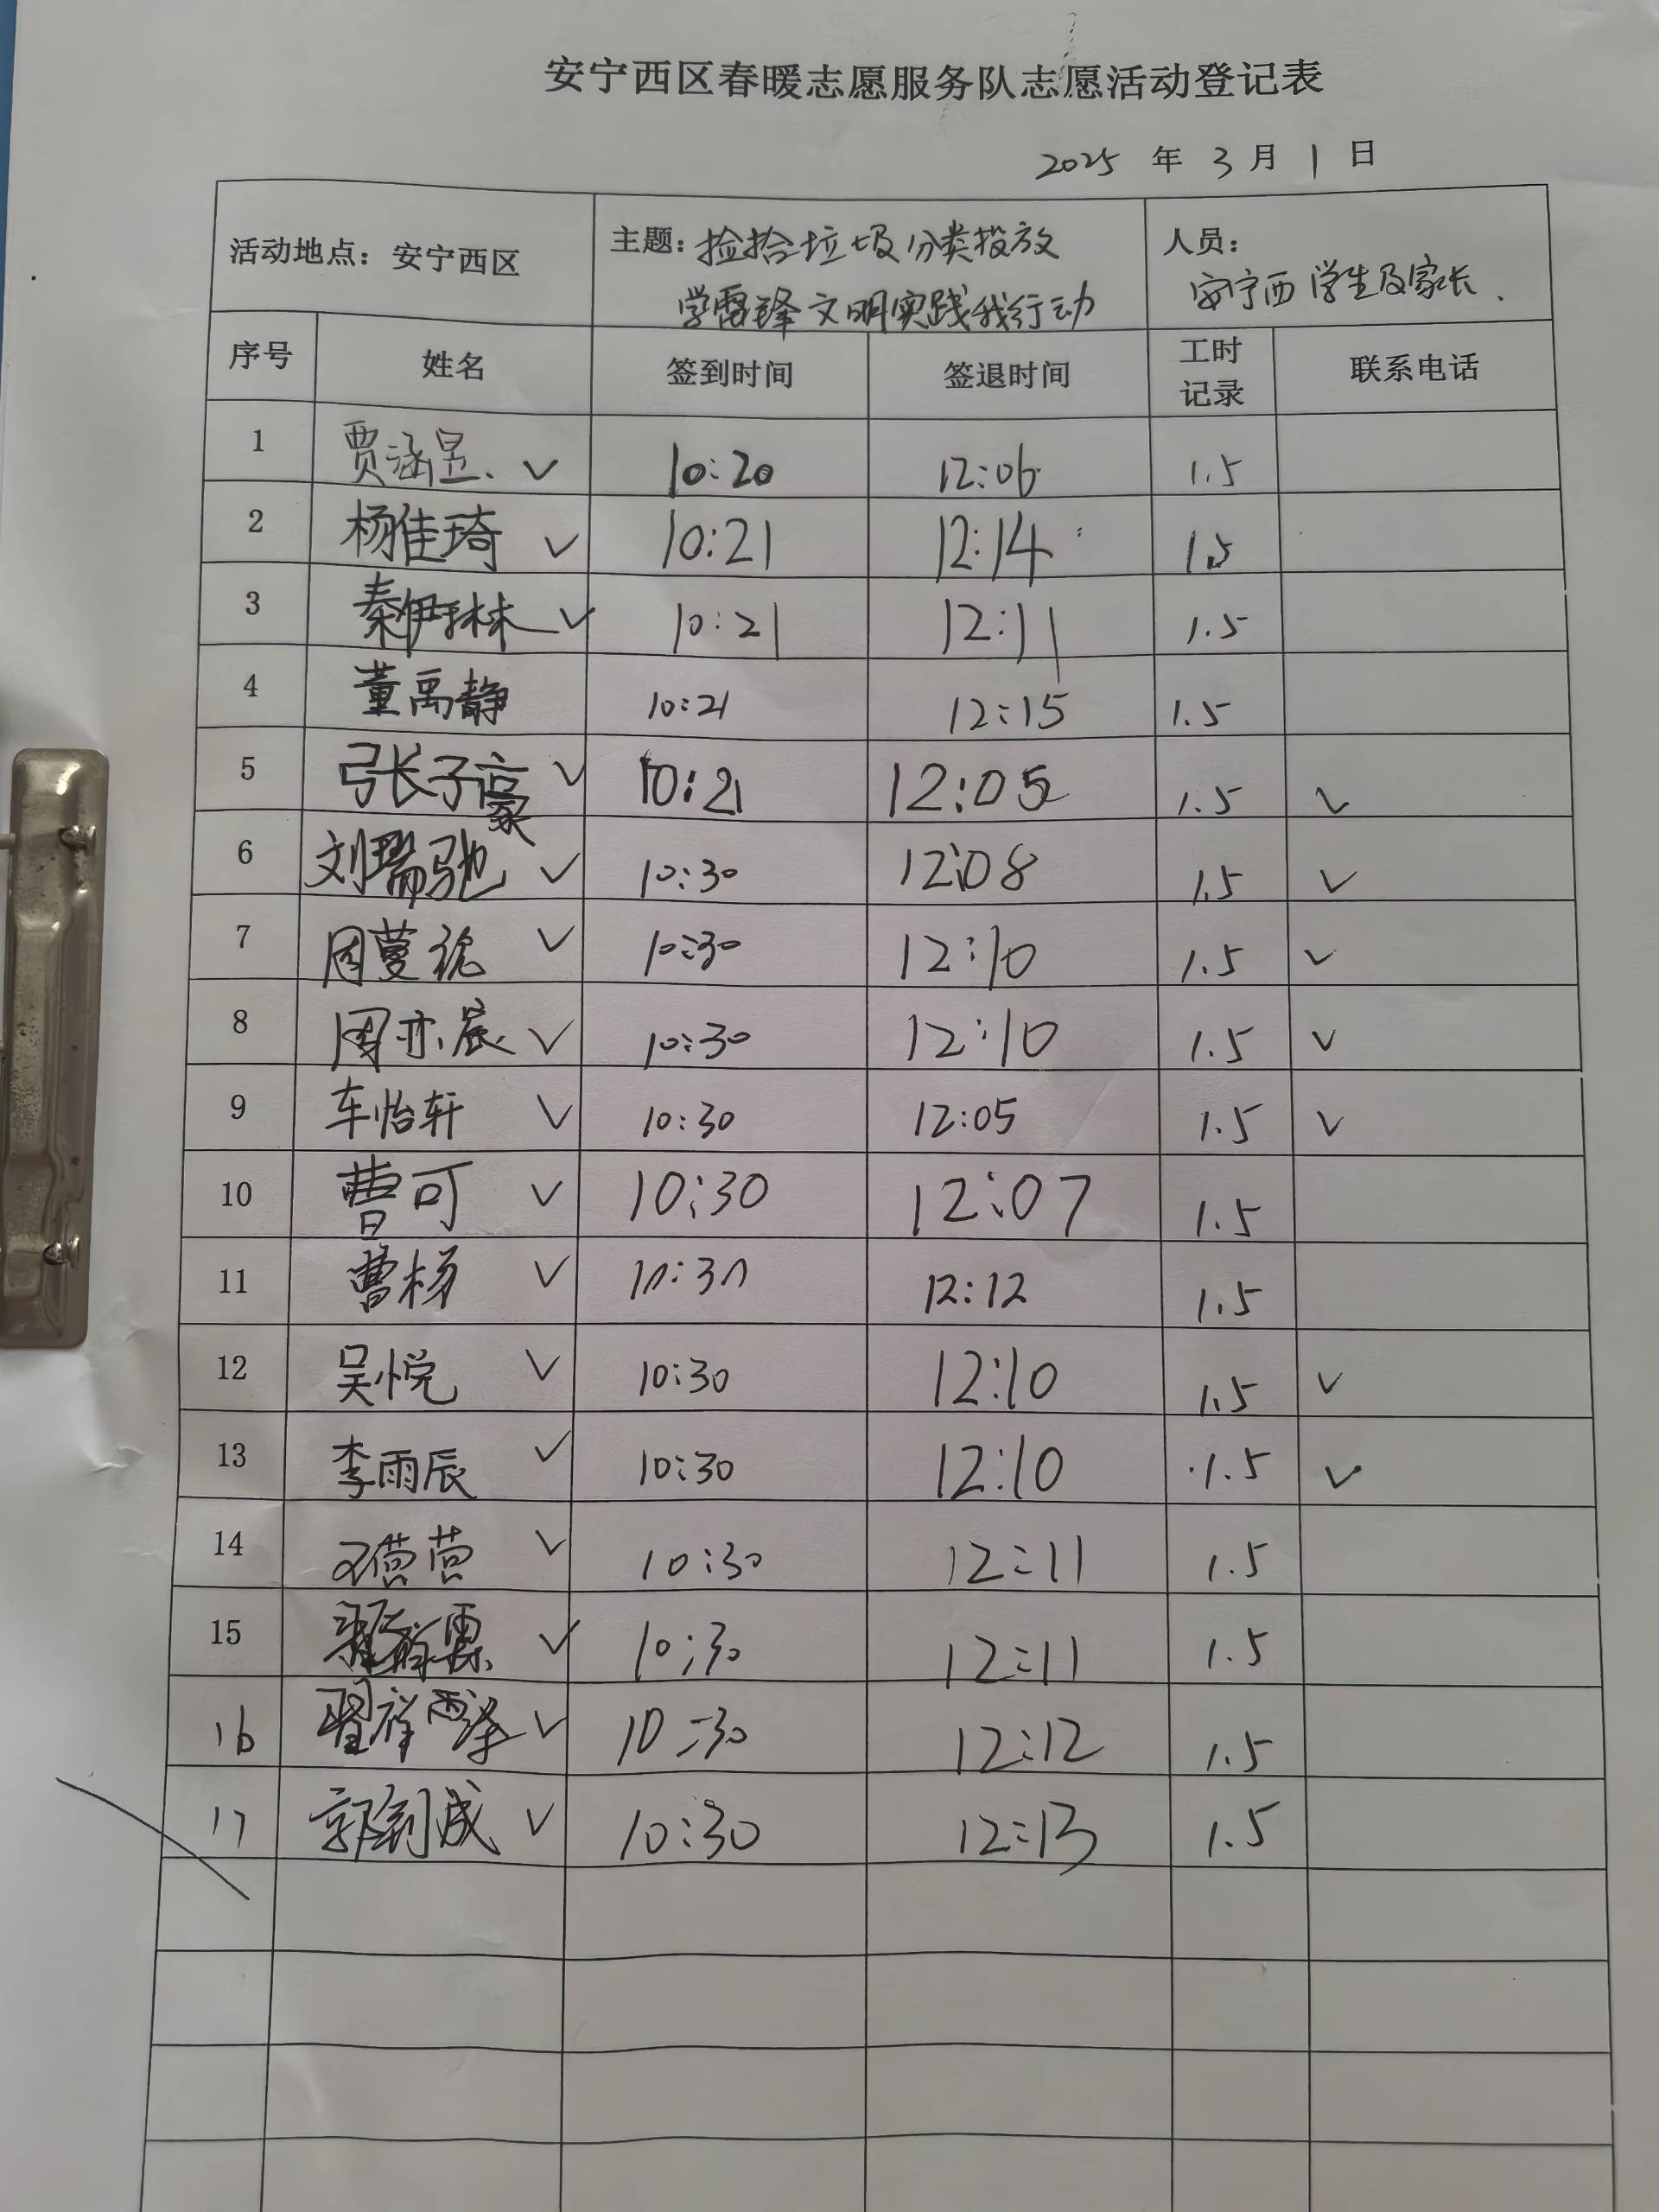 安宁西区春暖志愿服务队志愿活动登记表
2025 年 3 月 1 日
活动地点：安宁西区 主题：捡拾垃圾分类投放 人员：
学雷锋文明实践我行动 安宁西学生及家长.
序号 姓名 签到时间 签退时间 工时记录 联系电话
1 贾涵昱. ✓ 10:20 12:06 1.5
2 杨佳琦 ✓ 10:21 12:14 1.5
3 秦伊琳 ✓ 10:21 12:11 1.5
4 董禹静 10:21 12:15 1.5
5 张子豪 ✓ 10:21 12:05 1.5 ✓
6 刘瑞驰 ✓ 10:30 12:08 1.5 ✓
7 周蔓 ✓ 10:30 12:10 1.5 ✓
8 周亦宸 ✓ 10:30 12:10 1.5 ✓
9 车怡轩 ✓ 10:30 12:05 1.5 ✓
10 曹可 ✓ 10:30 12:07 1.5
11 曹杨 ✓ 10:30 12:12 1.5
12 吴悦 ✓ 10:30 12:10 1.5 ✓
13 李雨辰 ✓ 10:30 12:10 1.5 ✓
14 ✓ 10:30 12:11 1.5
15 ✓ 10:30 12:11 1.5
16 翟梓 ✓ 10:30 12:12 1.5
17 郭 成 ✓ 10:30 12:13 1.5